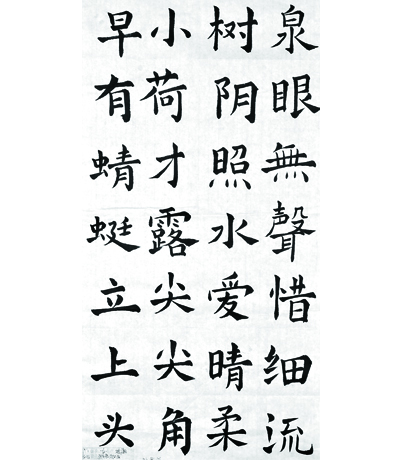 泉眼無聲惜细流
树阴照水爱晴柔
小荷才露尖尖角
早有蜻蜓立上头